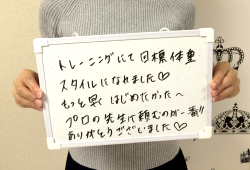 トレーニングにて目標体重
スタイルになれました♡
もっと早くはじめたかった〜
プロの先生に頼むのが一番!!
ありがとうございました♡